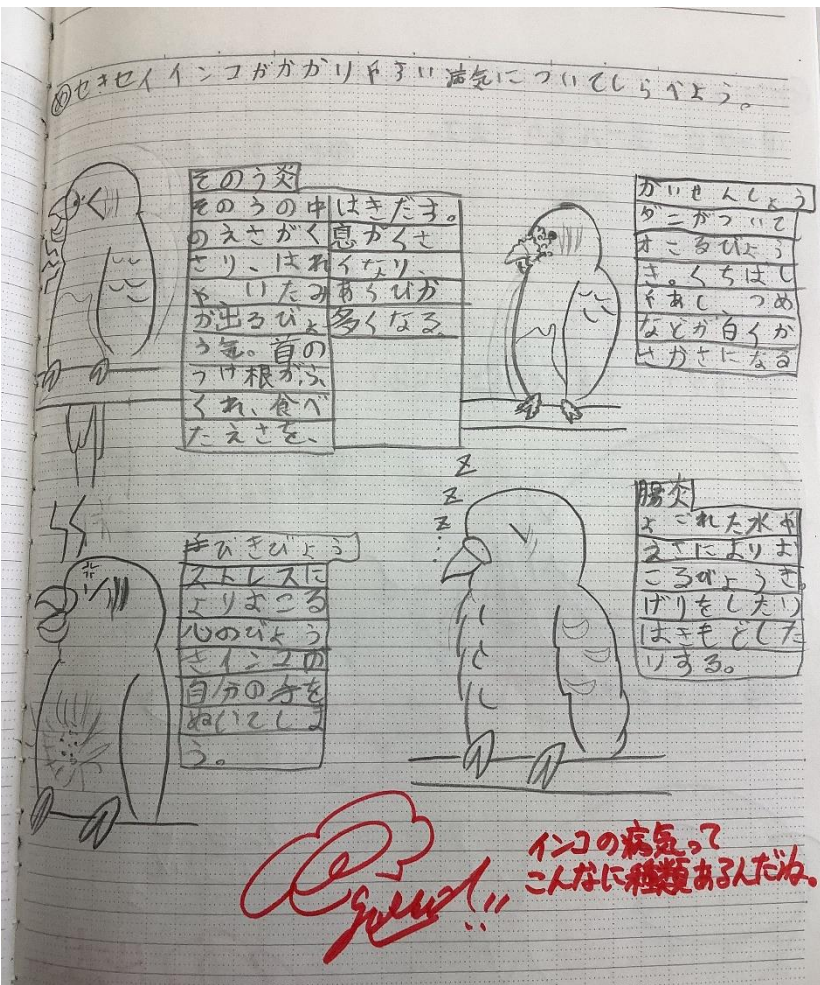 めセキセイインコがかかりやすい病気についてしらべよう。
そのう炎
そのうの中
のえさがく
さり、はれ
や、いたみ
が出るびょ
う気。首の
つけ根がふ
くれ、食べ
たえさを、
はきだす。
息がくさ
くなり、
あくびが
多くなる。
かいせんしょう
ダニがついて
おこるびょう
き。くちばし
やあし、つめ
などが白くか
さかさになる
z
z
z
毛びきびょう
ストレスに
よりおこる
心のびょう
きインコの
自分の毛を
ぬいてしま
う。
腸炎
よごれた水や
えさによりお
こるびょうき。
げりをしたり
はきもどした
りする。
Good!!
インコの病気って
こんなに種類あるんだね。